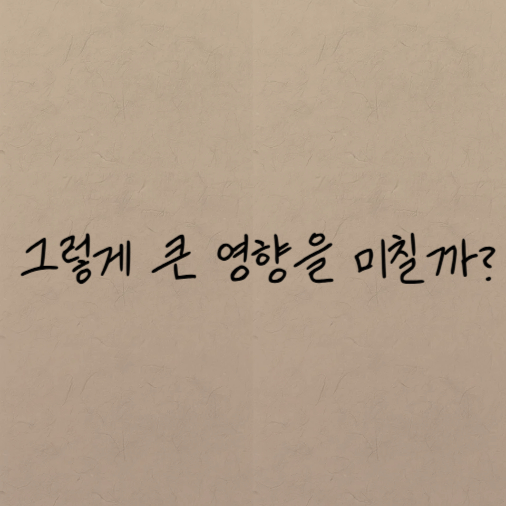 그렇게 큰 영향을 미칠까?